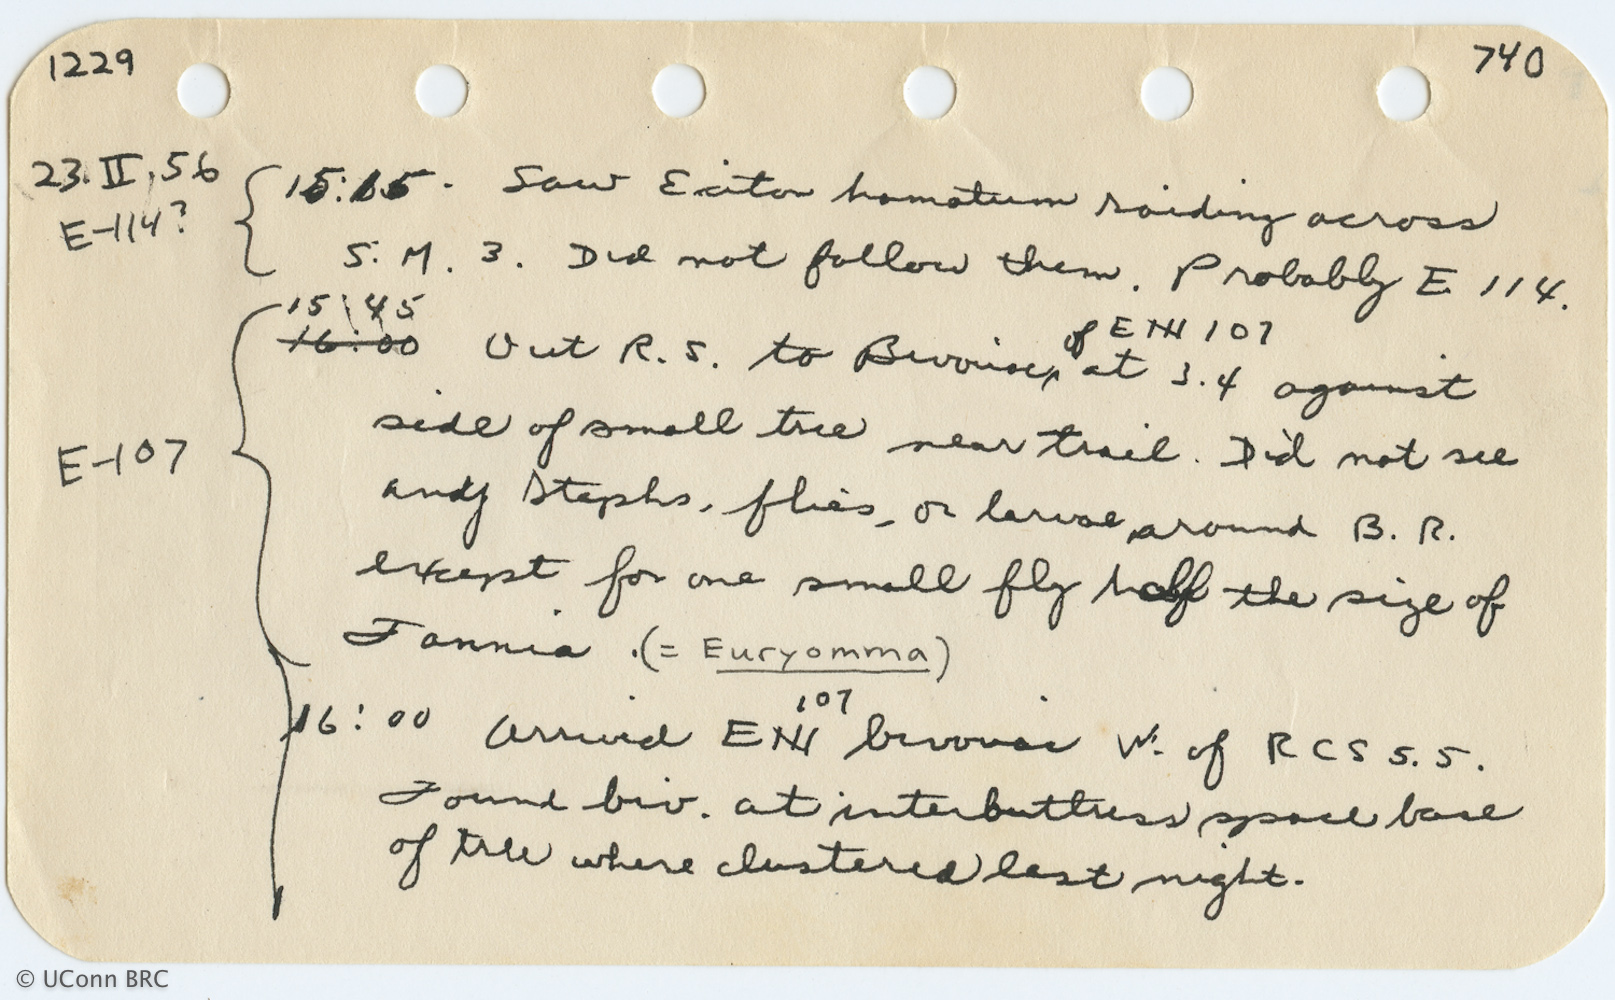 1229
740
23.II.56
E-114?
15:15. Saw Eciton hamatum raiding across
S. M. 3. Did not follow them. Probably E 114.
15:45
16:00 Out R. S. to Bivouac, of E 107 at 3.4 against
E-107
side of small tree near trail. Did not see
any Stephs, flies, or larvae around B. R.
except for one small fly half the size of
Fannia. (= Euryomma)
16:00 Arrived E 107 bivouac W. of RCS 5.5.
Found biv. at interbuttress space base
of tree where clustered last night.
© UConn BRC